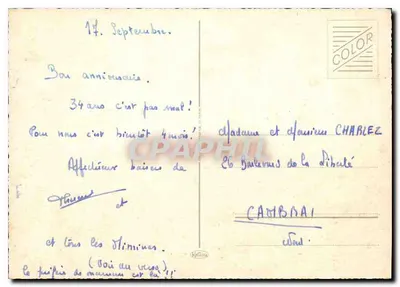 17 Septembre.
Bon anniversaire.
34 ans c'est pas mal!
Pour nous c'est bientôt 4 mois!
Affectueux baisers de
et
et tous les Mimines.
(Voir au verso)
COLOR
CPAPHIL
Madame et Monsieur CHARLEZ
26 Boulevard de la Liberté
CAMBRAI
Nord.